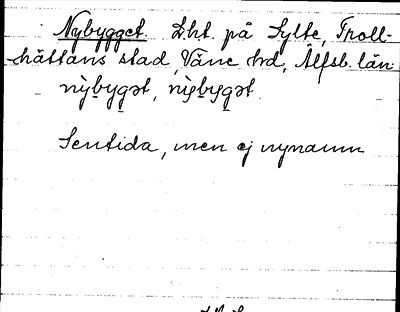 Nybygget. Lht. på Sylte, Troll-
hättans stad, Väne hd, Älfsb. län
ny̆bygət,
Sentida, men ej nynamn